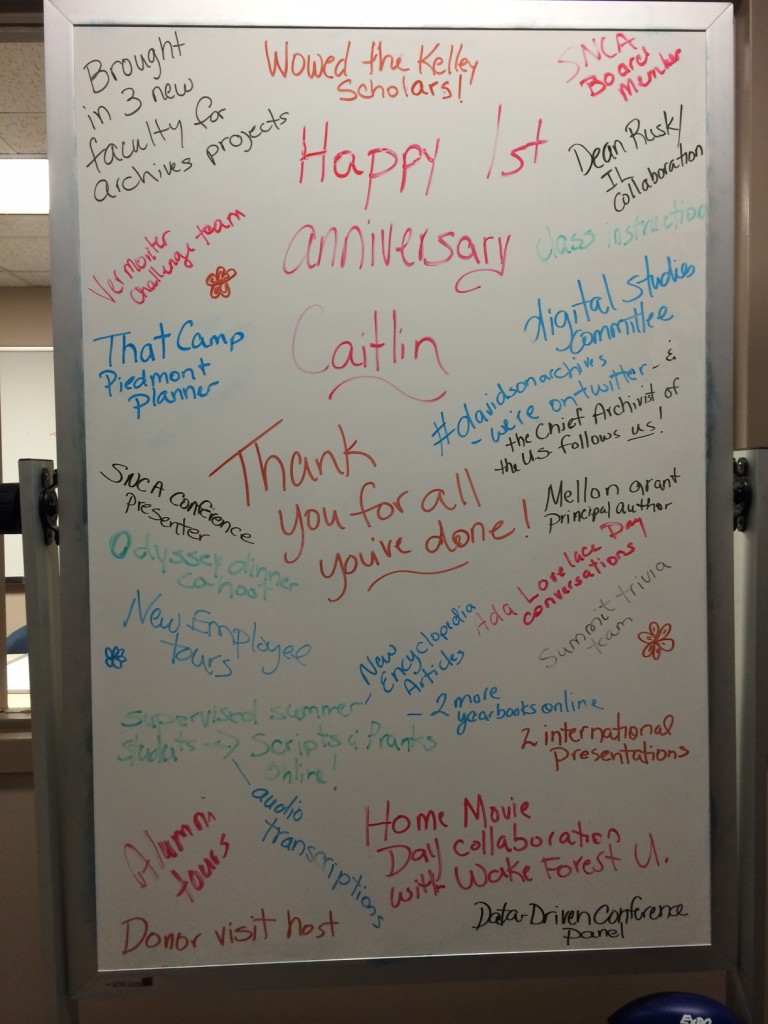 Brought
in 3 new
faculty for
archives projects
Wowed the Kelley
Scholars!
SNCA
Board
Member
Happy 1st
anniversary
Caitlin
Dean Rusk/
Collaboration
Vermonter
Challenge team
class instruction
Digital Studies
Committee
That Camp
Piedmont
Planner
#davidsonarchives
- we're on twitter - &
the Chief Archivist of
the U.S. follows us!
Thank
you for all
you've done!
SNCA Conference
Presenter
Mellon grant
principal author
Odyssey
New Employee
tours
Ada Lovelace Day
conversations
New
Encyclopedia
Articles
Summit trivia
team
Supervised summer
students → Scripts & Pranks
online!
- 2 more
yearbooks online
2 international
presentations
audio
transcriptions
Alumni
tours
Home Movie
Day collaboration
with Wake Forest U.
Donor visit host
Data-Driven Conference
panel